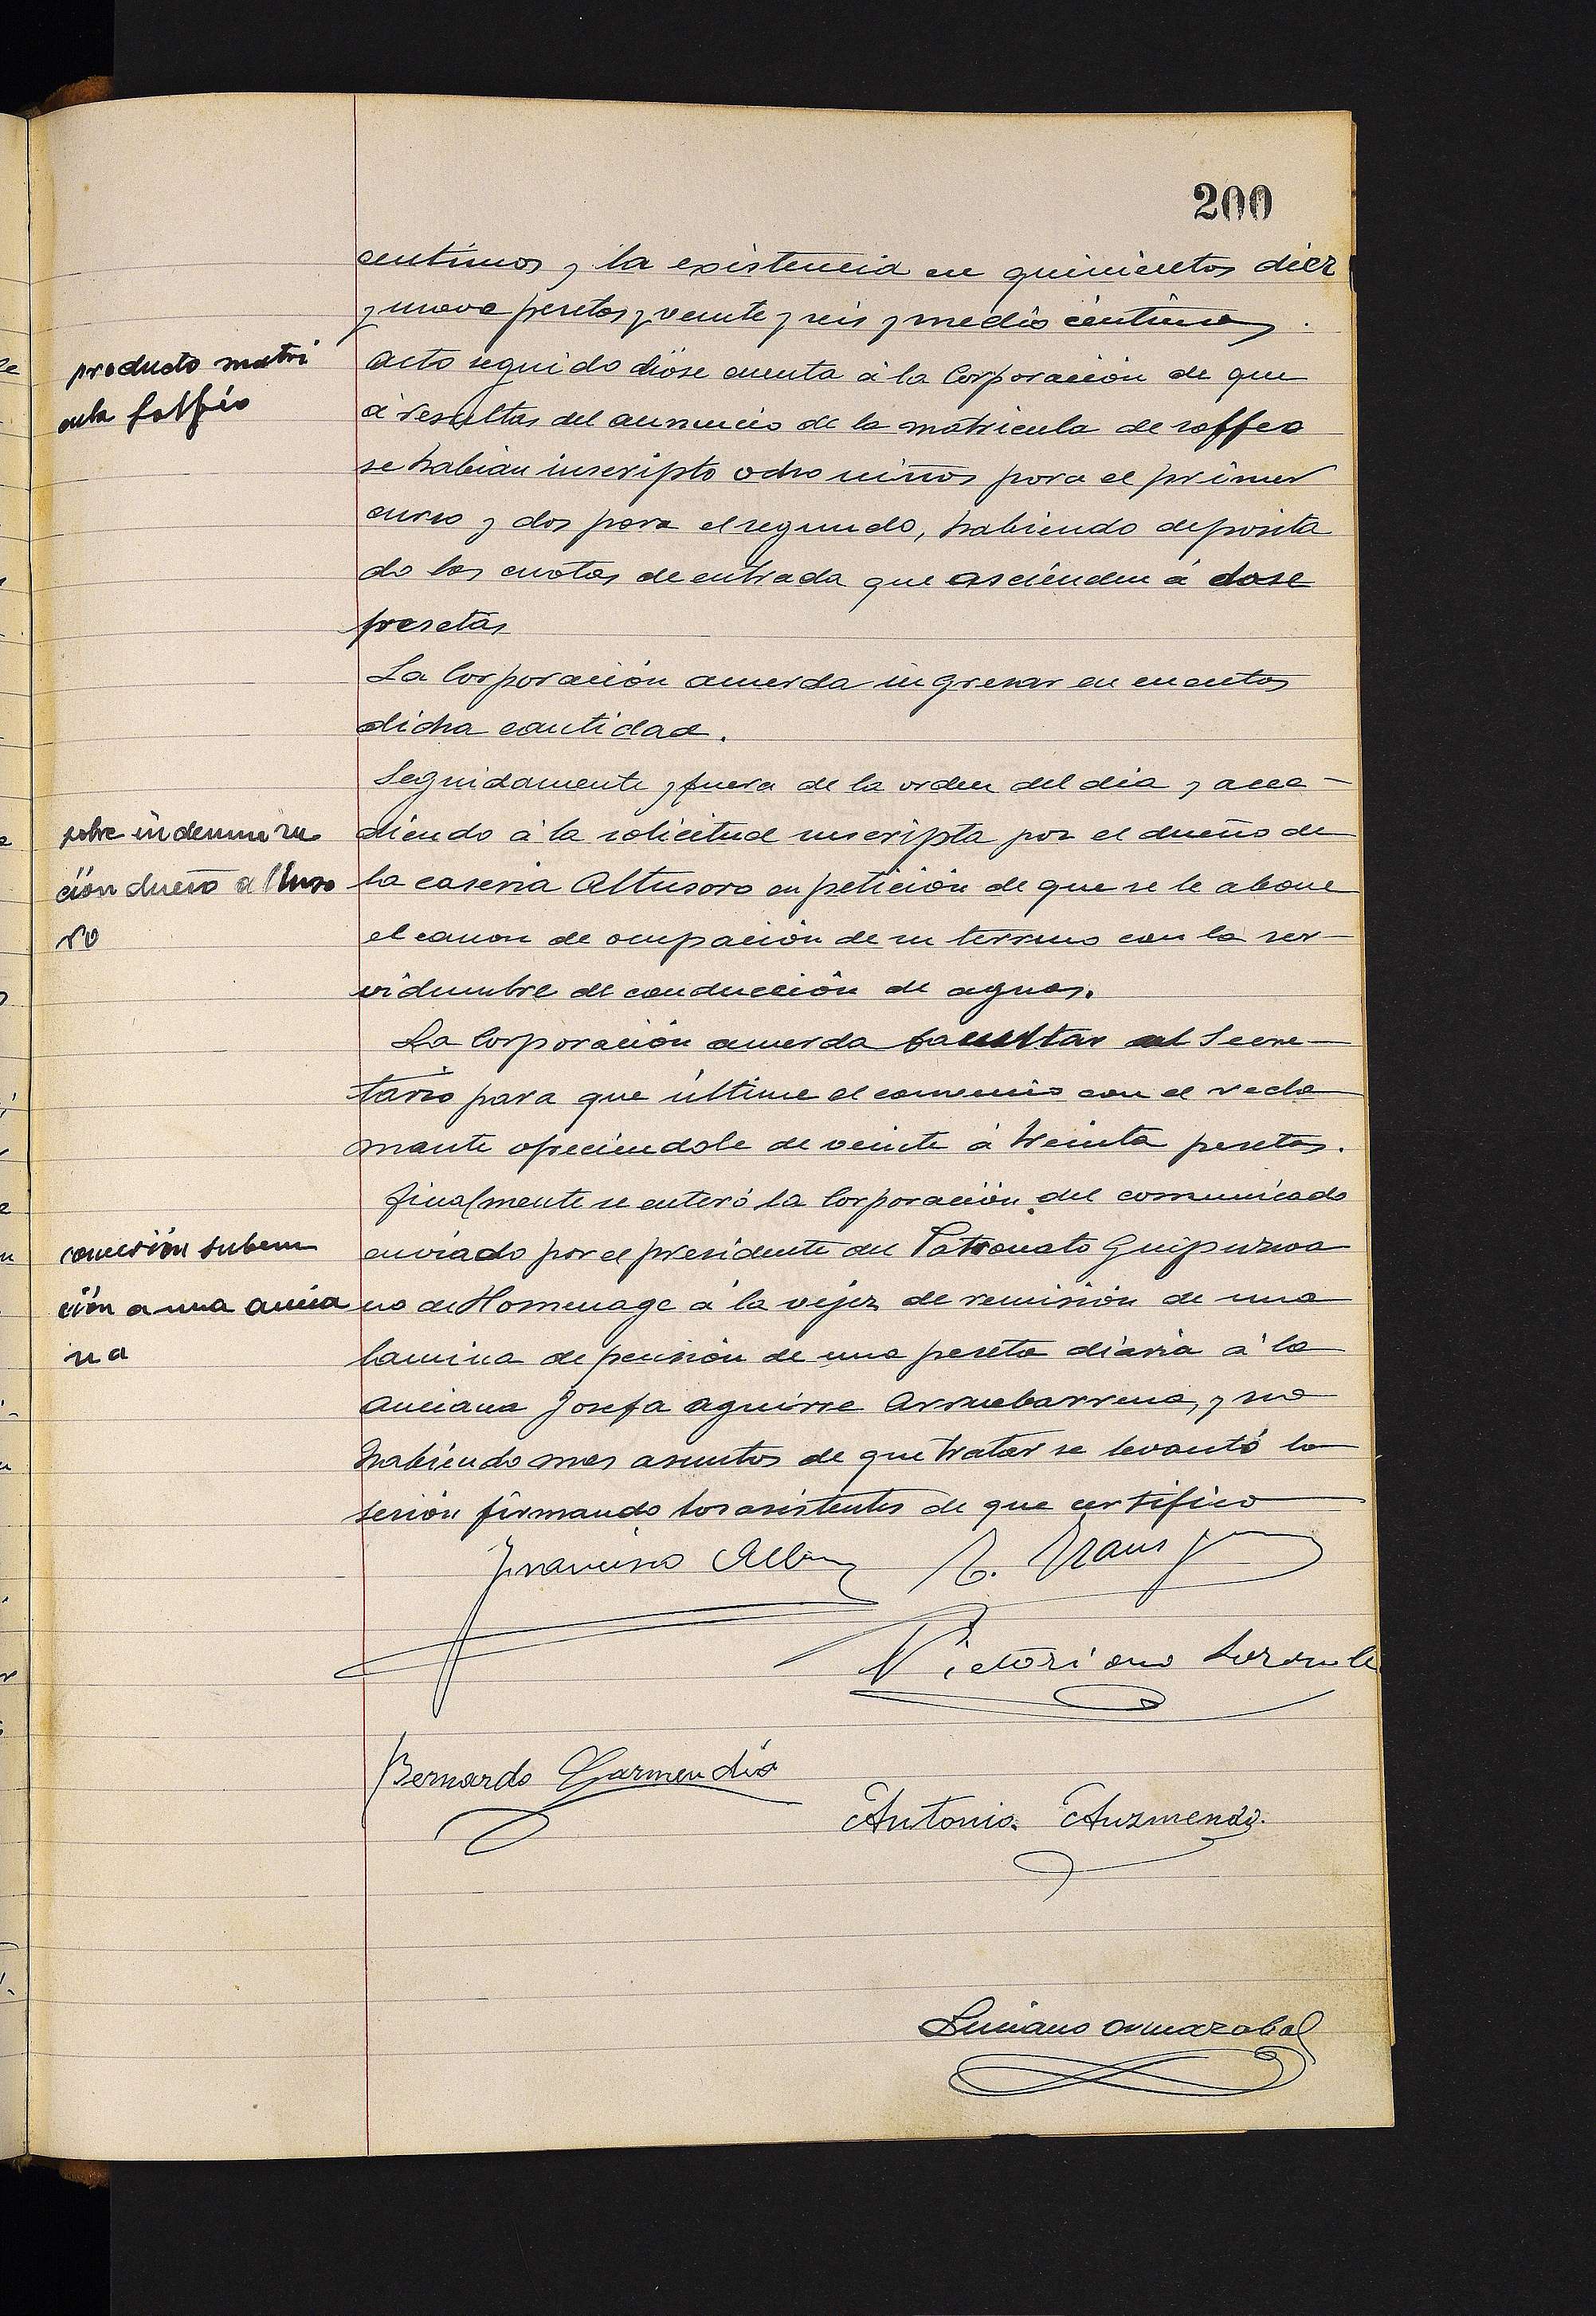 200
centimos y la existencia en quinientos diez
y nueve pesetas y veinte y seis y medio centimos.
producto matri
cula solfeo
Acto seguido dióse cuenta á la Corporación de que
á resultas del anuncio de la matricula de solffeo
se habian inscripto ocho niños para el primer
curso y dos para el segundo, habiendo deposita
do las cuotas de entrada que ascienden á dose
pesetas
La Corporación acuerda ingresar en cuentas
dicha cantidad.
Seguidamente y fuera de la orden del dia y acce-
sobre indemniza
ción dueño altuso
ro
diendo á la solicitud suscripta por el dueño de
la caseria Altusoro en petición de que se le abone
el canon de ocupación de su terreno con la ser-
vidumbre de conducción de aguas.
La Corporación acuerda facultar al Secre-
tario para que últime el convenio con el recla
mante ofreciendole de veinte á treinta pesetas.
finalmente se enteró la Corporación del comunicado
conceción subven
ción a una ancia
na
enviado por el presidente del Patronato Guipuzcoa
no de Homenage á la vejez de remisión de una
lamina de pensión de una peseta diaria á la
anciana Josefa Aguirre Arruebarrena, y no
habiendo mas asuntos de que tratar se levantó la
sesión firmando los asistentes de que certifico
Francisco
Victoriano
Bernardo Garmendia
Antonio Auzmendi.
Luciano Ormazabal